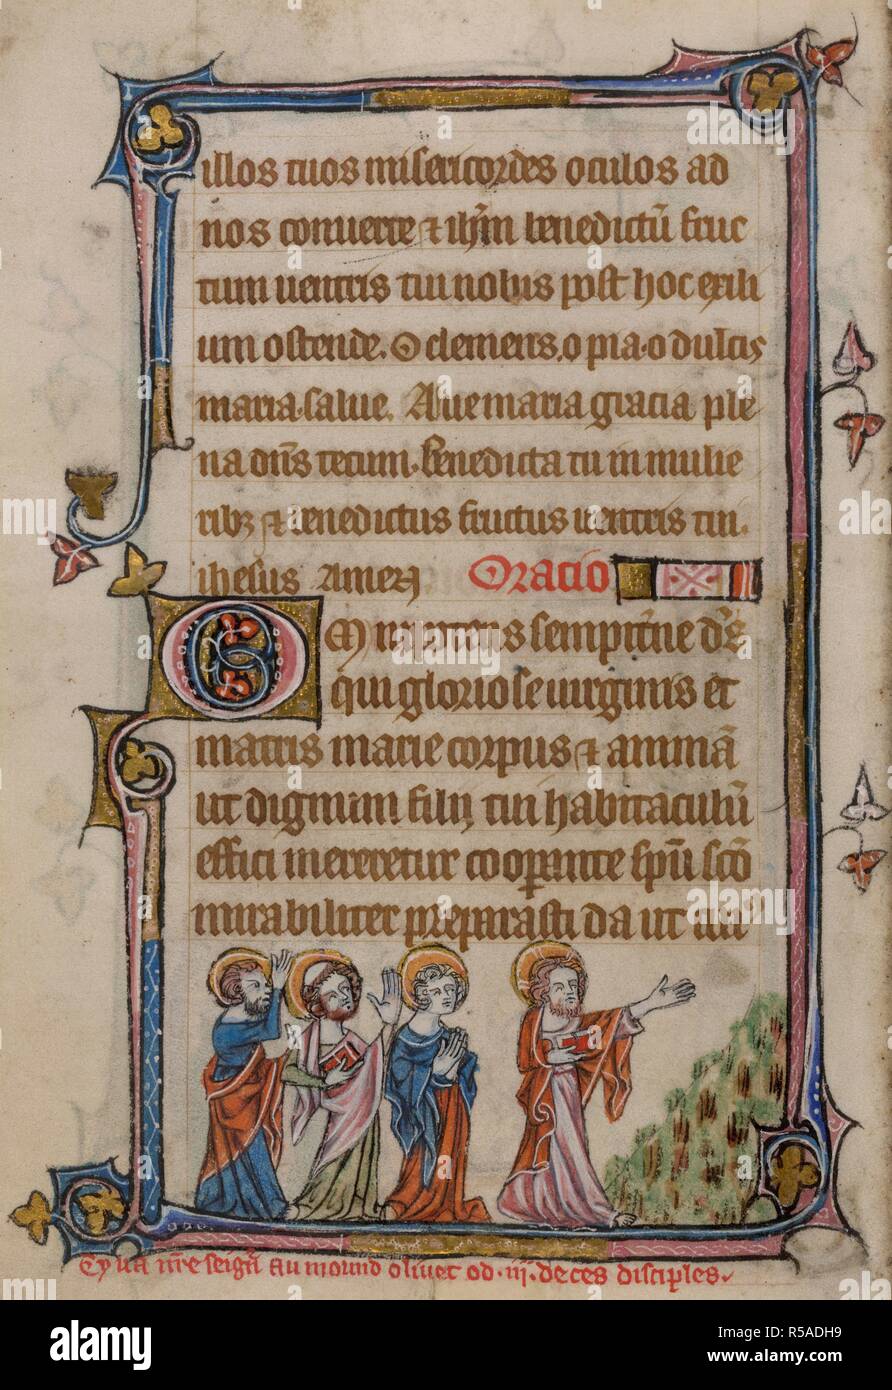 illos tuos misericordes oculos ad
nos conuerte ⁊ ih̄m benedictū fruc
tum uentris tui nobis post hoc exili
um ostende. O clemens. o pia. o dulcis
maria. salue. Aue maria gracia ple
na dn̄s tecum. benedicta tu in mulie
ribꝫ ⁊ benedictus fructus uentris tui.
ihesus Amen
Oracio
OMnipotens sempit̄ne d̄s
qui gloriose uirginis et
matris marie corpus ⁊ animā
ut dignum filij tui habitaculū
effici mereretur cooꝑante sp̄u sc̄o
mirabiliter preparasti da ut cuiꝰ
Cy ua nr̄e seign̄ au mound oliuet od .iij. de ces disciples.
alamy
alamy
Image ID: R5ADH9
www.alamy.com